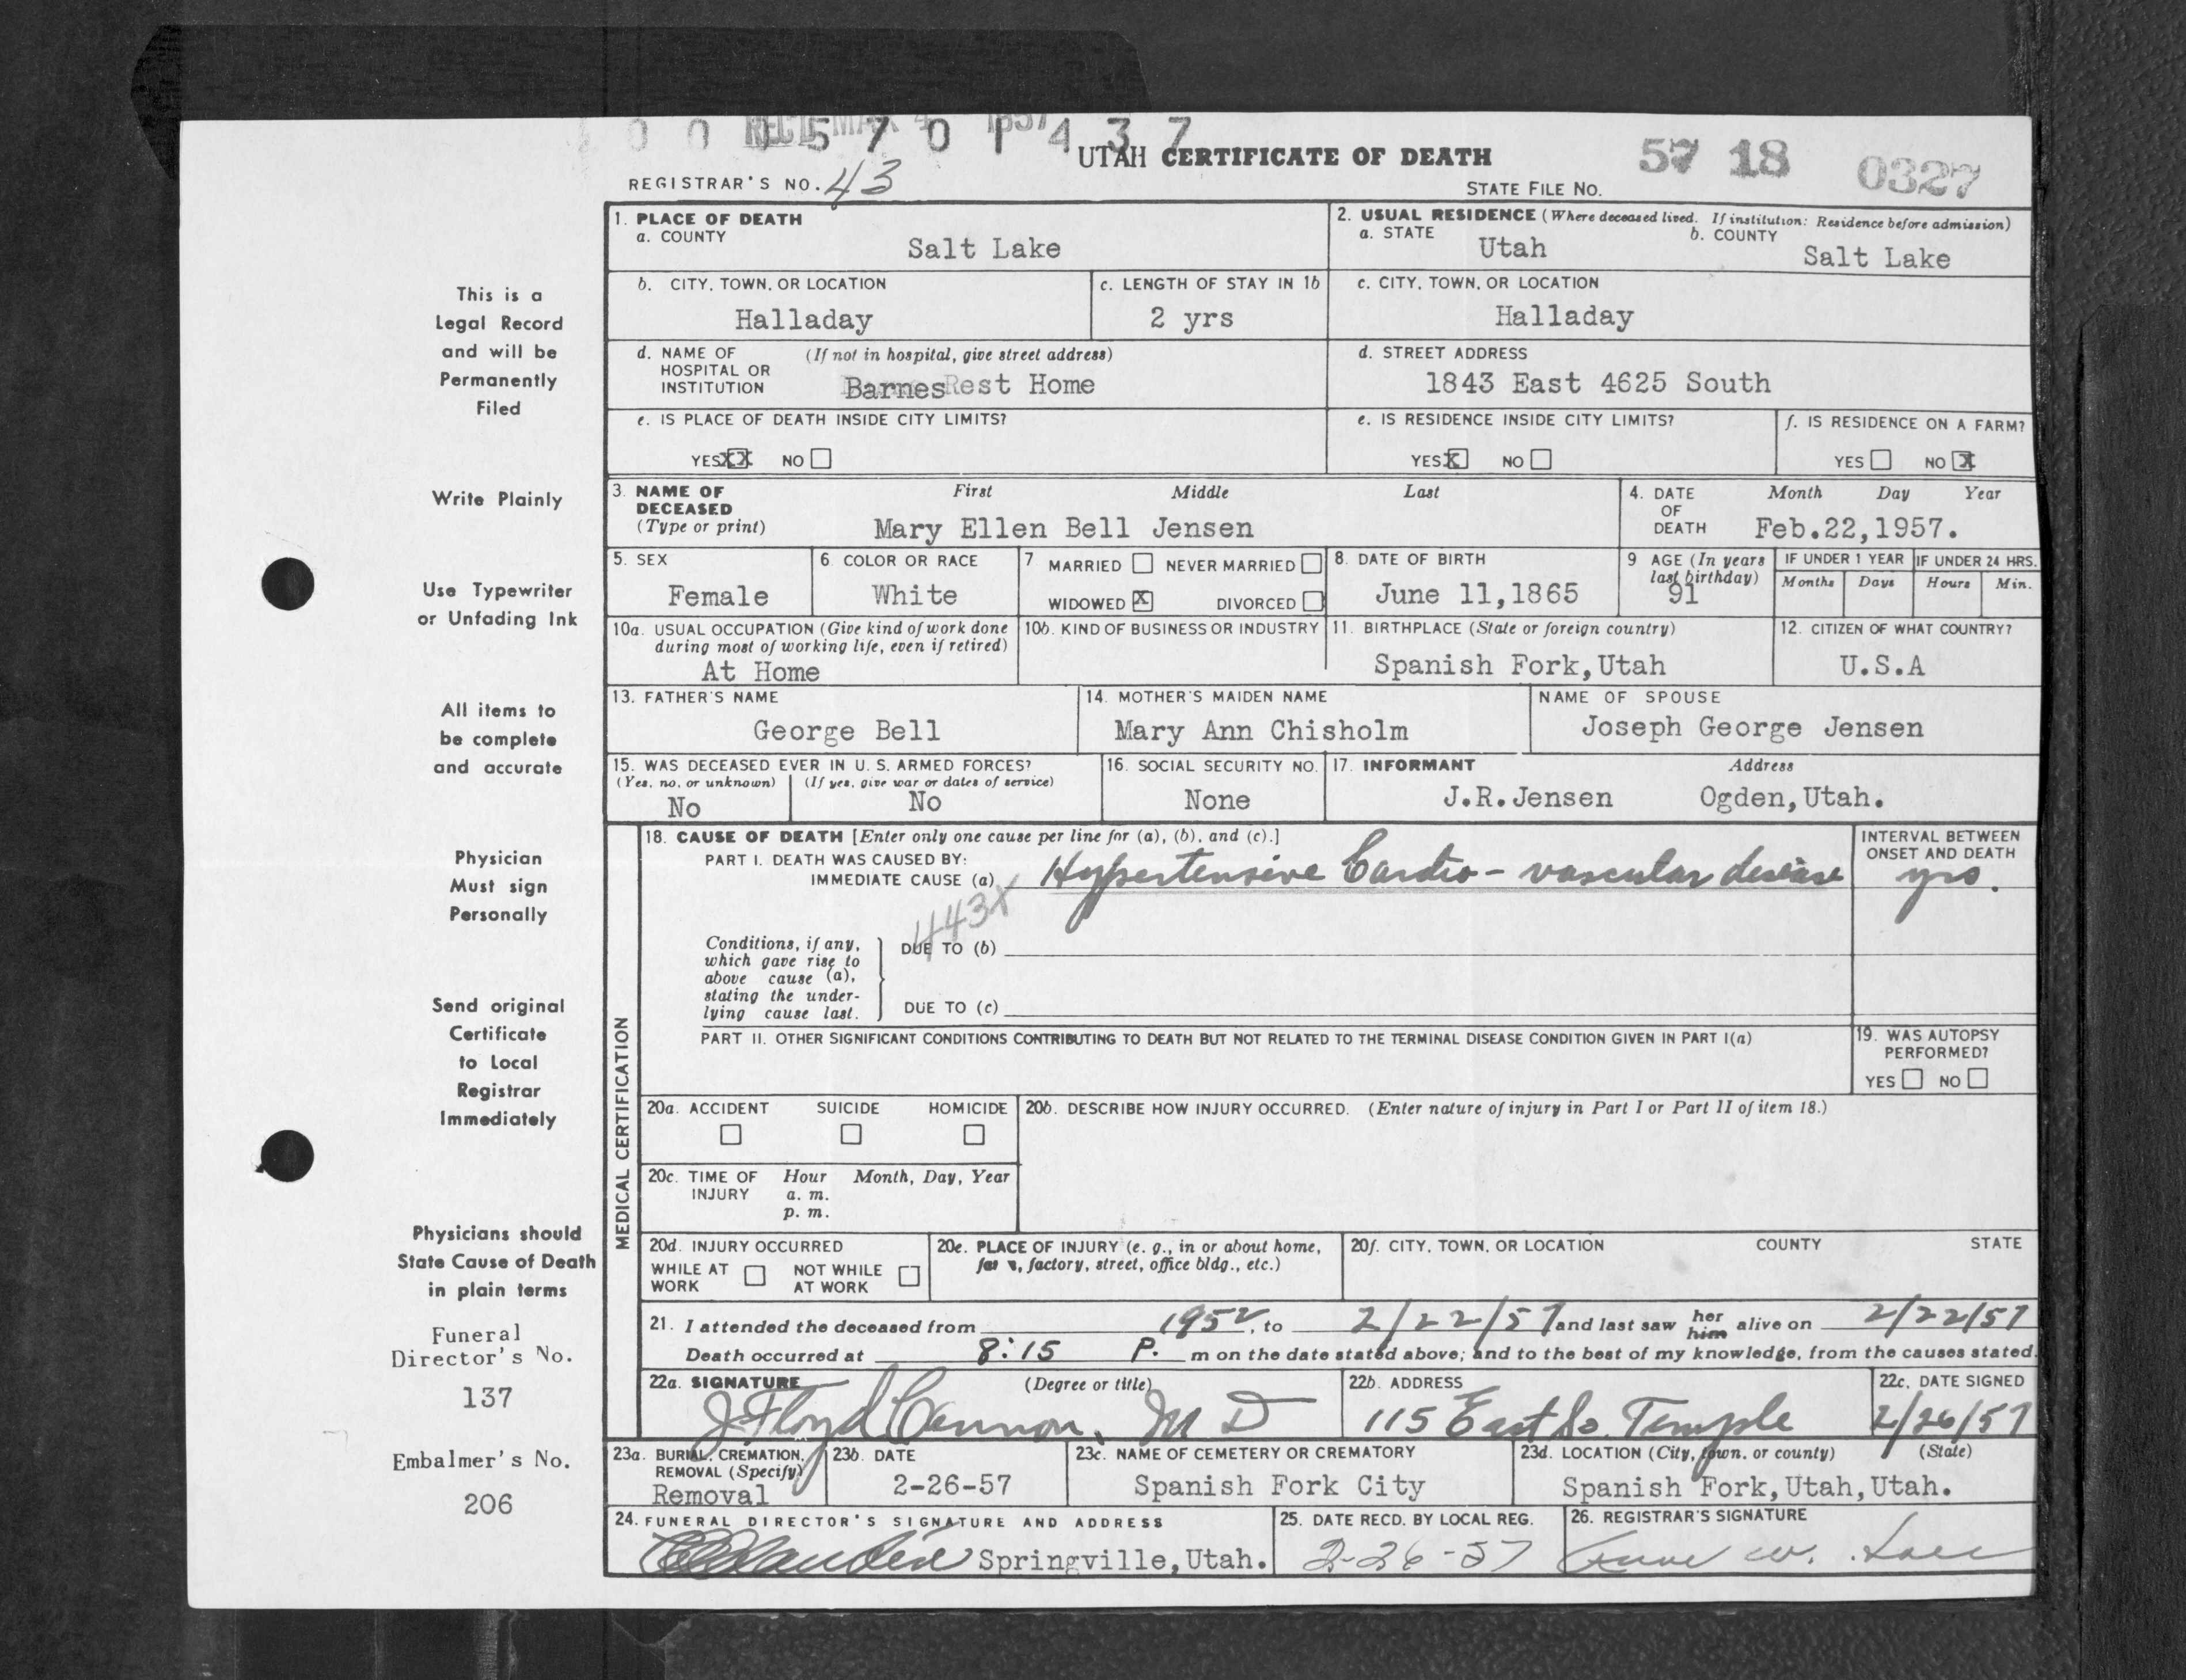 0 0 0 5 7 0 1 4 3 7
REC'D MAR 4 1957
UTAH CERTIFICATE OF DEATH
57 18 0327
REGISTRAR'S NO. 43
STATE FILE NO.
1. PLACE OF DEATH
a. COUNTY
Salt Lake
2. USUAL RESIDENCE (Where deceased lived. If institution: Residence before admission)
a. STATE
Utah
b. COUNTY
Salt Lake
b. CITY, TOWN, OR LOCATION
Halladay
c. LENGTH OF STAY IN 1b
2 yrs
c. CITY, TOWN, OR LOCATION
Halladay
d. NAME OF HOSPITAL OR INSTITUTION
(If not in hospital, give street address)
Barnes Rest Home
d. STREET ADDRESS
1843 East 4625 South
e. IS PLACE OF DEATH INSIDE CITY LIMITS?
YES XX NO
e. IS RESIDENCE INSIDE CITY LIMITS?
YES X NO
f. IS RESIDENCE ON A FARM?
YES NO X
3. NAME OF DECEASED (Type or print)
First Middle Last
Mary Ellen Bell Jensen
4. DATE OF DEATH
Month Day Year
Feb.22,1957.
5. SEX
Female
6. COLOR OR RACE
White
7 MARRIED NEVER MARRIED
WIDOWED X DIVORCED
8. DATE OF BIRTH
June 11,1865
9 AGE (In years last birthday)
91
IF UNDER 1 YEAR
Months Days
IF UNDER 24 HRS.
Hours Min.
10a. USUAL OCCUPATION (Give kind of work done during most of working life, even if retired)
At Home
10b. KIND OF BUSINESS OR INDUSTRY
11. BIRTHPLACE (State or foreign country)
Spanish Fork,Utah
12. CITIZEN OF WHAT COUNTRY?
U.S.A
13. FATHER'S NAME
George Bell
14. MOTHER'S MAIDEN NAME
Mary Ann Chisholm
NAME OF SPOUSE
Joseph George Jensen
15. WAS DECEASED EVER IN U. S. ARMED FORCES?
(Yes, no, or unknown) (If yes, give war or dates of service)
No No
16. SOCIAL SECURITY NO.
None
17. INFORMANT Address
J.R.Jensen Ogden,Utah.
MEDICAL CERTIFICATION
18. CAUSE OF DEATH [Enter only one cause per line for (a), (b), and (c).]
PART I. DEATH WAS CAUSED BY:
IMMEDIATE CAUSE (a) Hypertensive Cardio-vascular disease
INTERVAL BETWEEN ONSET AND DEATH
yrs.
443X
Conditions, if any, which gave rise to above cause (a), stating the underlying cause last.
DUE TO (b)
DUE TO (c)
PART II. OTHER SIGNIFICANT CONDITIONS CONTRIBUTING TO DEATH BUT NOT RELATED TO THE TERMINAL DISEASE CONDITION GIVEN IN PART I(a)
19. WAS AUTOPSY PERFORMED?
YES NO
20a. ACCIDENT SUICIDE HOMICIDE
20b. DESCRIBE HOW INJURY OCCURRED. (Enter nature of injury in Part I or Part II of item 18.)
20c. TIME OF INJURY
Hour Month, Day, Year
a. m.
p. m.
20d. INJURY OCCURRED
WHILE AT WORK NOT WHILE AT WORK
20e. PLACE OF INJURY (e. g., in or about home, farm, factory, street, office bldg., etc.)
20f. CITY, TOWN, OR LOCATION COUNTY STATE
21. I attended the deceased from 1952, to 2/22/57 and last saw her him alive on 2/22/57
Death occurred at 8:15 P. m on the date stated above; and to the best of my knowledge, from the causes stated.
22a. SIGNATURE (Degree or title)
J Floyd Cannon, M D
22b. ADDRESS
115 East So. Temple
22c. DATE SIGNED
2/26/57
23a. BURIAL, CREMATION, REMOVAL (Specify)
Removal
23b. DATE
2-26-57
23c. NAME OF CEMETERY OR CREMATORY
Spanish Fork City
23d. LOCATION (City, town, or county) (State)
Spanish Fork,Utah,Utah.
24. FUNERAL DIRECTOR'S SIGNATURE AND ADDRESS
Springville,Utah.
25. DATE RECD. BY LOCAL REG.
2-26-57
26. REGISTRAR'S SIGNATURE
This is a
Legal Record
and will be
Permanently
Filed
Write Plainly
Use Typewriter
or Unfading Ink
All items to
be complete
and accurate
Physician
Must sign
Personally
Send original
Certificate
to Local
Registrar
Immediately
Physicians should
State Cause of Death
in plain terms
Funeral
Director's No.
137
Embalmer's No.
206